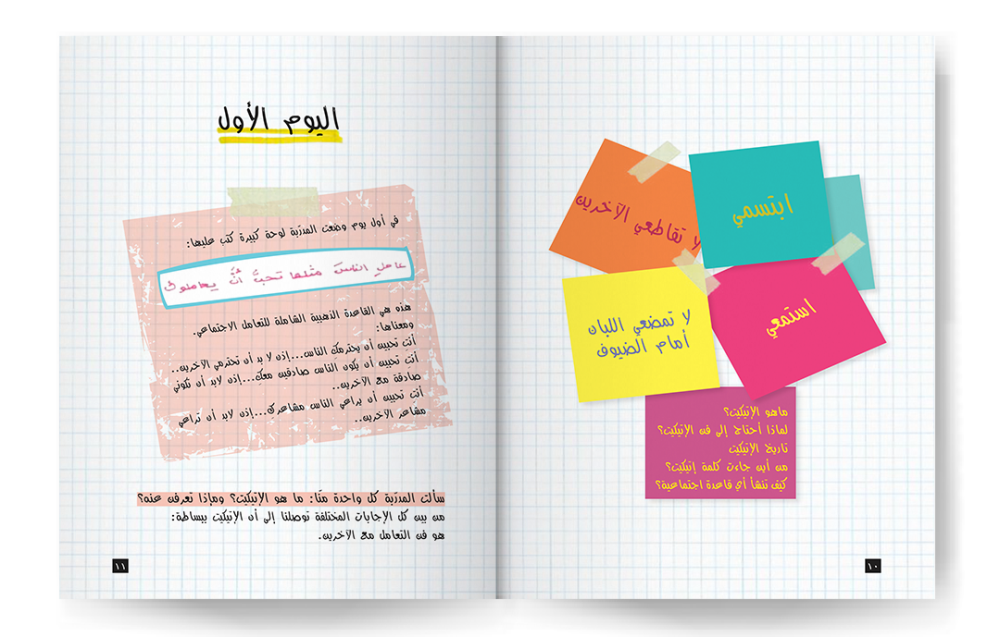 لا تقاطعي الآخرين
ابتسمي
لا تمضغي اللبان
أمام الضيوف
استمعي
ماهو الإتيكيت؟
لماذا أحتاج إلى فن الإتيكيت؟
تاريخ الإتيكيت
من أين جاءت كلمة إتيكيت؟
كيف تنشأ أي قاعدة اجتماعية؟
١٠
اليوم الأول
في أول يوم وضعت المدرّبة لوحة كبيرة كتب عليها:
عاملِ الناسَ مثلما تحبُّ أنْ يعاملوك
هذه هي القاعدة الذهبية الشاملة للتعامل الاجتماعي.
ومعناها:
أنتِ تحبين أن يحترمكِ الناس...إذن لا بد أن تحترمي الآخرين..
أنتِ تحبين أن يكون الناس صادقين معكِ...إذن لابد أن تكوني
صادقة مع الآخرين..
أنتِ تحبين أن يراعي الناس مشاعركِ...إذن لابد أن تراعي
مشاعر الآخرين..
سألت المدرّبة كل واحدة منّا: ما هو الإتيكيت؟ وماذا تعرفن عنه؟
من بين كل الإجابات المختلفة توصلنا إلى أن الإتيكيت ببساطة:
هو فن التعامل مع الآخرين.
١١